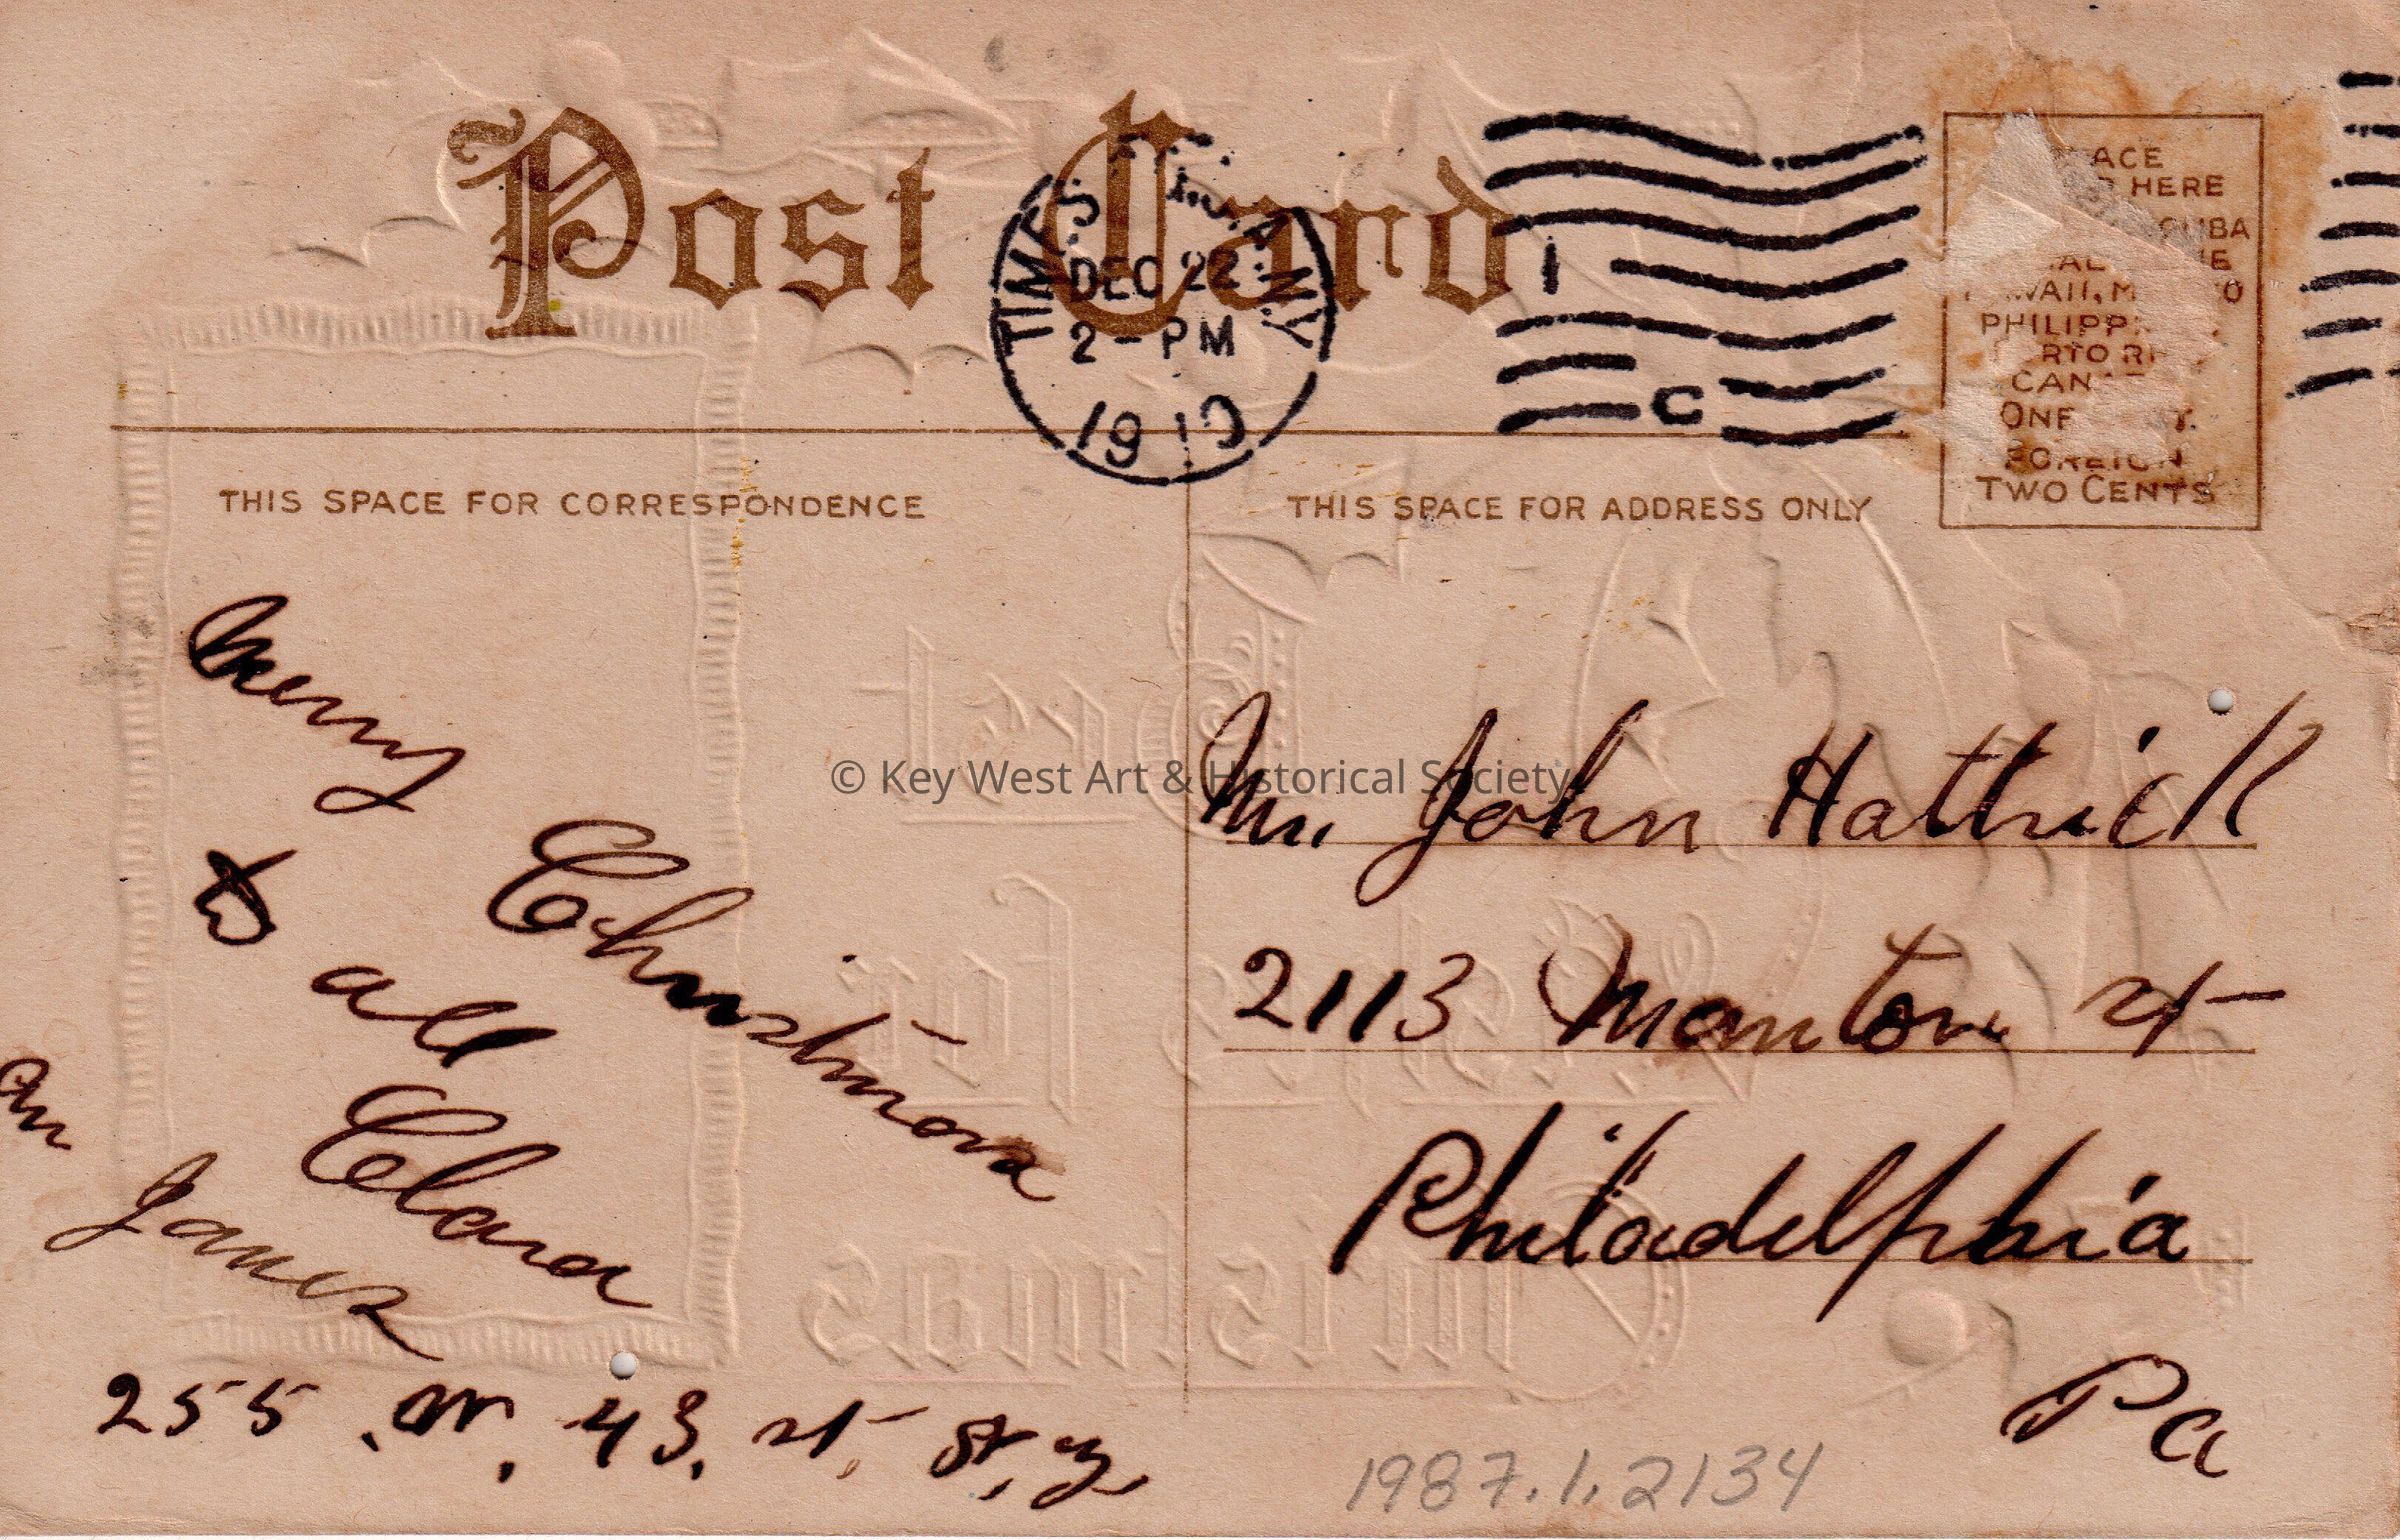 Post Card
TIMES SQUARE STA. N.Y.
DEC 22
2 - PM
1910
1
C
ACE
HERE
CUBA
WAII, M
PHILIPP
RTO RI
CAN
ONE
FOREIGN
TWO CENTS
THIS SPACE FOR CORRESPONDENCE
THIS SPACE FOR ADDRESS ONLY
Merry
Christmas
to all
Clara
James
255 W. 43. st, N, Y,
Mr. John Hattrick
2113 Manton st
Philadelphia
Pa
1987.1.2134
© Key West Art & Historical Society
Best
Wishes for
Christmas